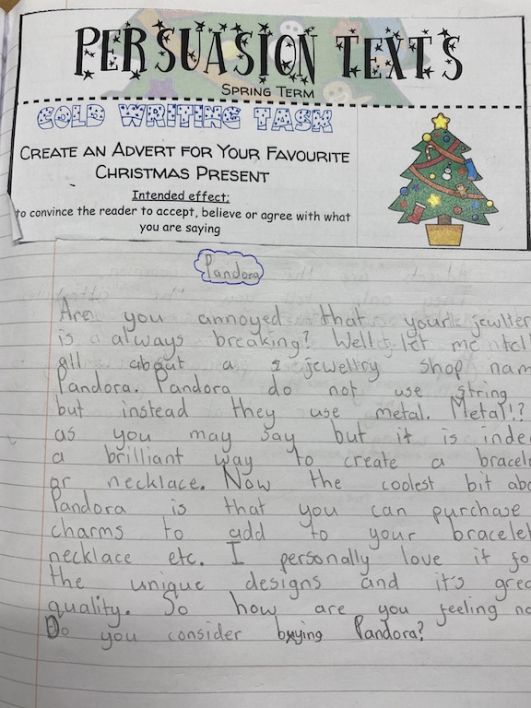 PERSUASION TEXTS
SPRING TERM
COLD WRITING TASK
CREATE AN ADVERT FOR YOUR FAVOURITE
CHRISTMAS PRESENT
Intended effect:
to convince the reader to accept, believe or agree with what
you are saying
Pandora
Are you annoyed that your jewller
is always breaking? Well let me tell
all about a jewellry shop nam
Pandora. Pandora do not use string
but instead they use metal. Metal!?
as you may say but it is inde
a brilliant way to create a bracele
or necklace. Now the coolest bit abo
Pandora is that you can purchase
charms to add to your bracele
necklace etc. I personally love it fo
the unique designs and it's grea
quality. So how are you feeling no
Do you consider buying Pandora?